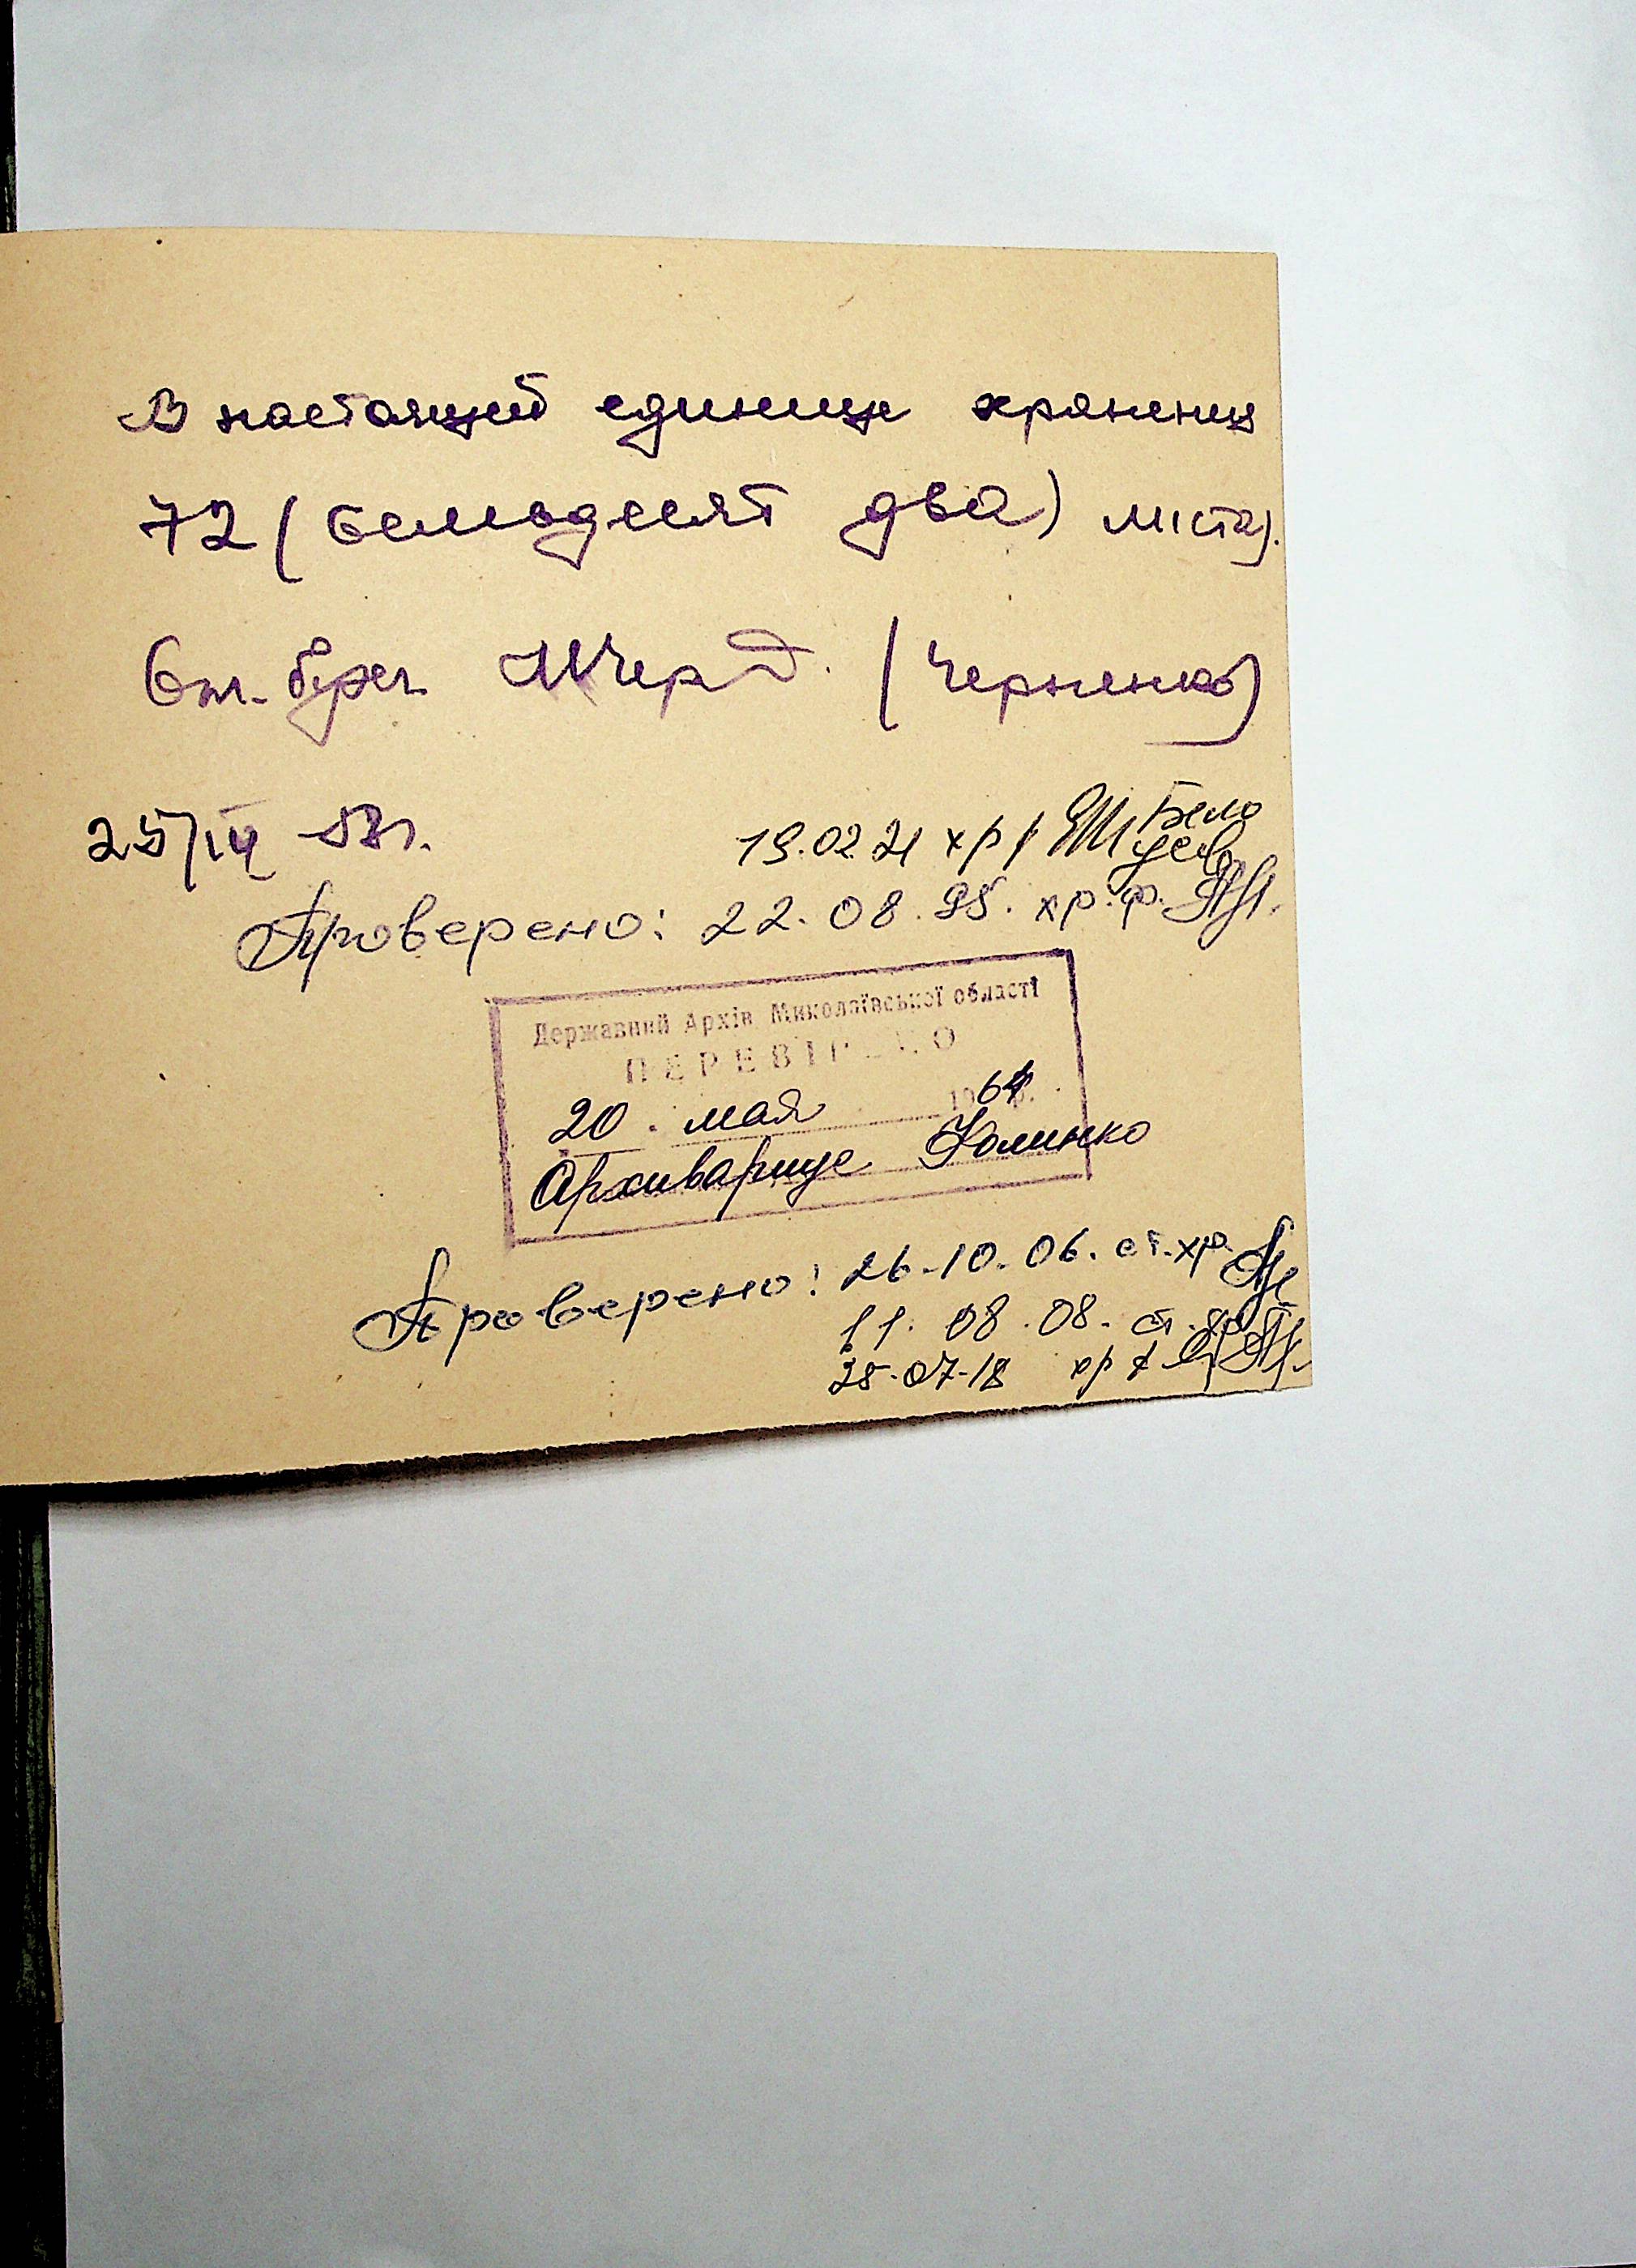 В настоящей единице хранения
72 (семьдесят два) листа).
(Черненко)
25/IV 58г.
19.02.21 хр ф Бело
усова
Проверено: 22.08.95. хр.ф.
Державний Архів Миколаївської області
ПЕРЕВІРЕНО
20. мая 1964 р.
Архивариус
Проверено: 26.10.06. ст.хр.
11.08.08. ст.хр
25.07.18 хр ф